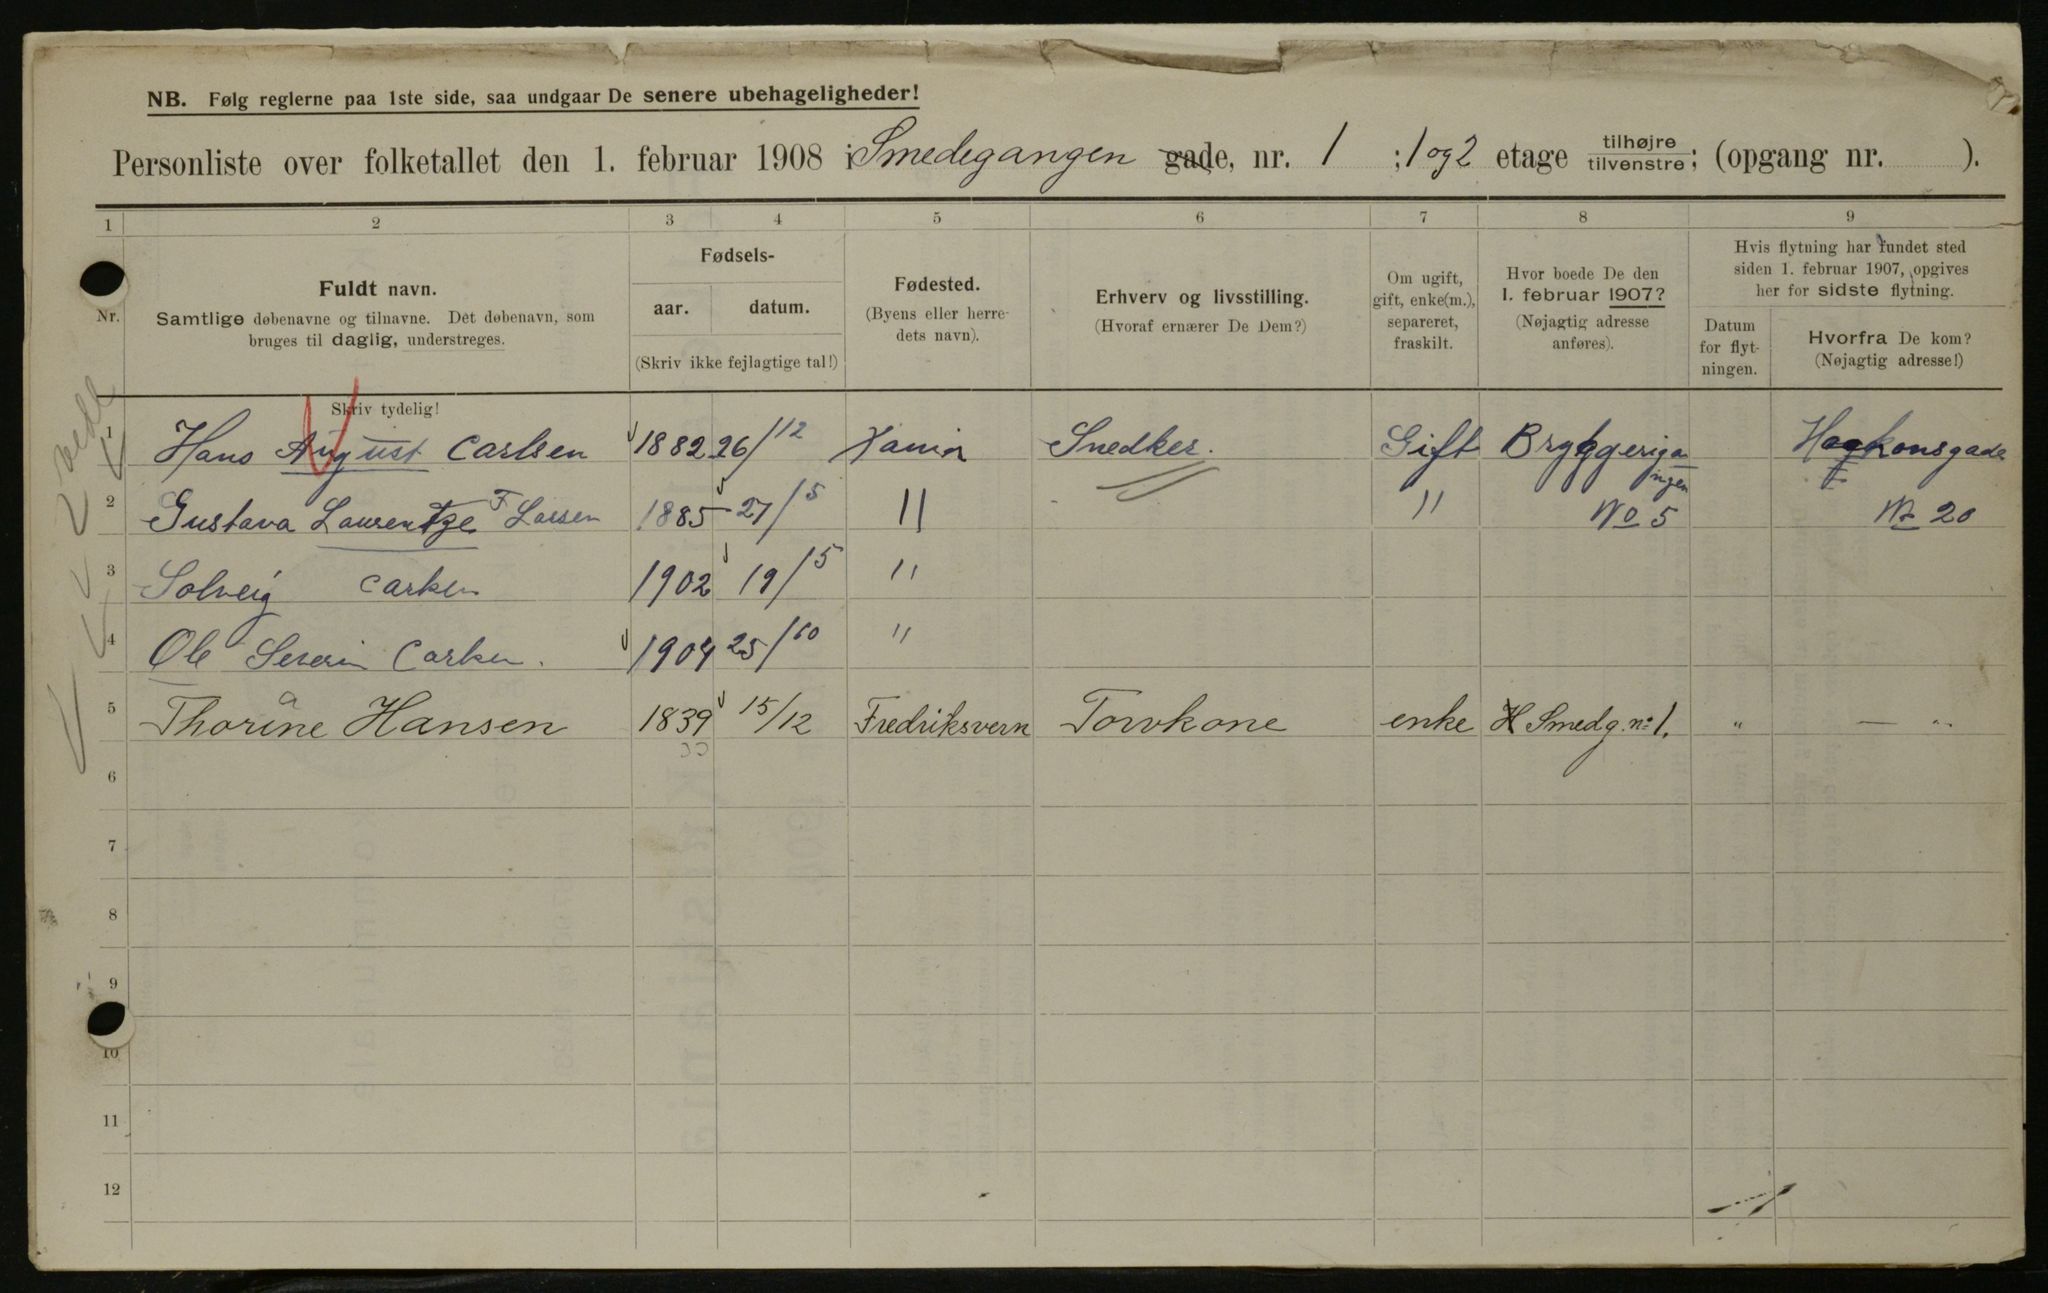 NB. Følg reglerne paa 1ste side, saa undgaar De senere ubehageligheder!
Personliste over folketallet den 1. februar 1908 i Smedegangen gade, nr. 1 ; 1 og 2 etage tilhøjre tilvenstre; (opgang nr. ).
1 2 3 4 5 6 7 8 9
Nr.
Fuldt navn.
Samtlige døbenavne og tilnavne. Det døbenavn, som
bruges til daglig, understreges.
Skriv tydelig!
Fødsels-
aar. datum.
(Skriv ikke fejlagtige tal!)
Fødested.
(Byens eller herre-
dets navn).
Erhverv og livsstilling.
(Hvoraf ernærer De Dem?)
Om ugift,
gift, enke(m.),
separeret,
fraskilt.
Hvor boede De den
1. februar 1907?
(Nøjagtig adresse
anføres).
Hvis flytning har fundet sted
siden 1. februar 1907, opgives
her for sidste flytning.
Datum
for flyt-
ningen.
Hvorfra De kom?
(Nøjagtig adresse!)
1 Hans August Carlsen 1882 26/12 Xania Snedker. Gift Bryggeriga Haakonsgade
ingen
2 Gustava Laurentze F Larsen 1885 27/5 " " No 5 No 20
3 Solveig Carlsen 1902 19/5 "
4 Ole Severin Carlsen. 1904 25/10 "
5 Thorine Hansen 1839 15/12 Fredriksvern Torvkone enke Smedg. no 1. " — "
6
7
8
9
10
11
12